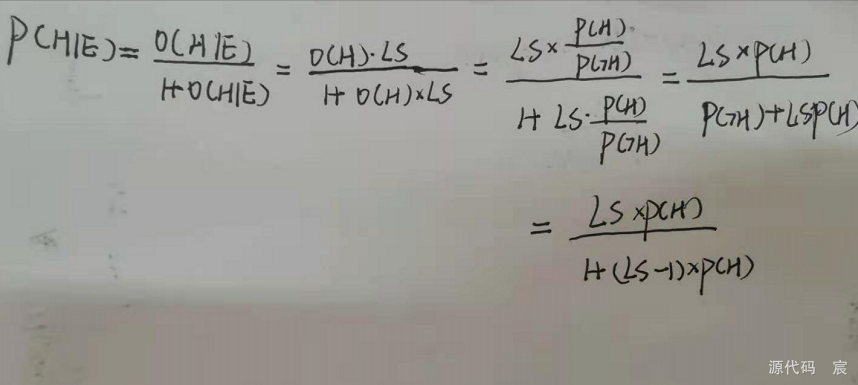 P(H|E) = O(H|E) / 1+O(H|E) = O(H)·LS / 1+O(H)×LS = LS×P(H)/P(¬H) / 1+LS·P(H)/P(¬H) = LS×P(H) / P(¬H)+LSP(H)
= LS×P(H) / 1+(LS-1)×P(H)
源代码 宸